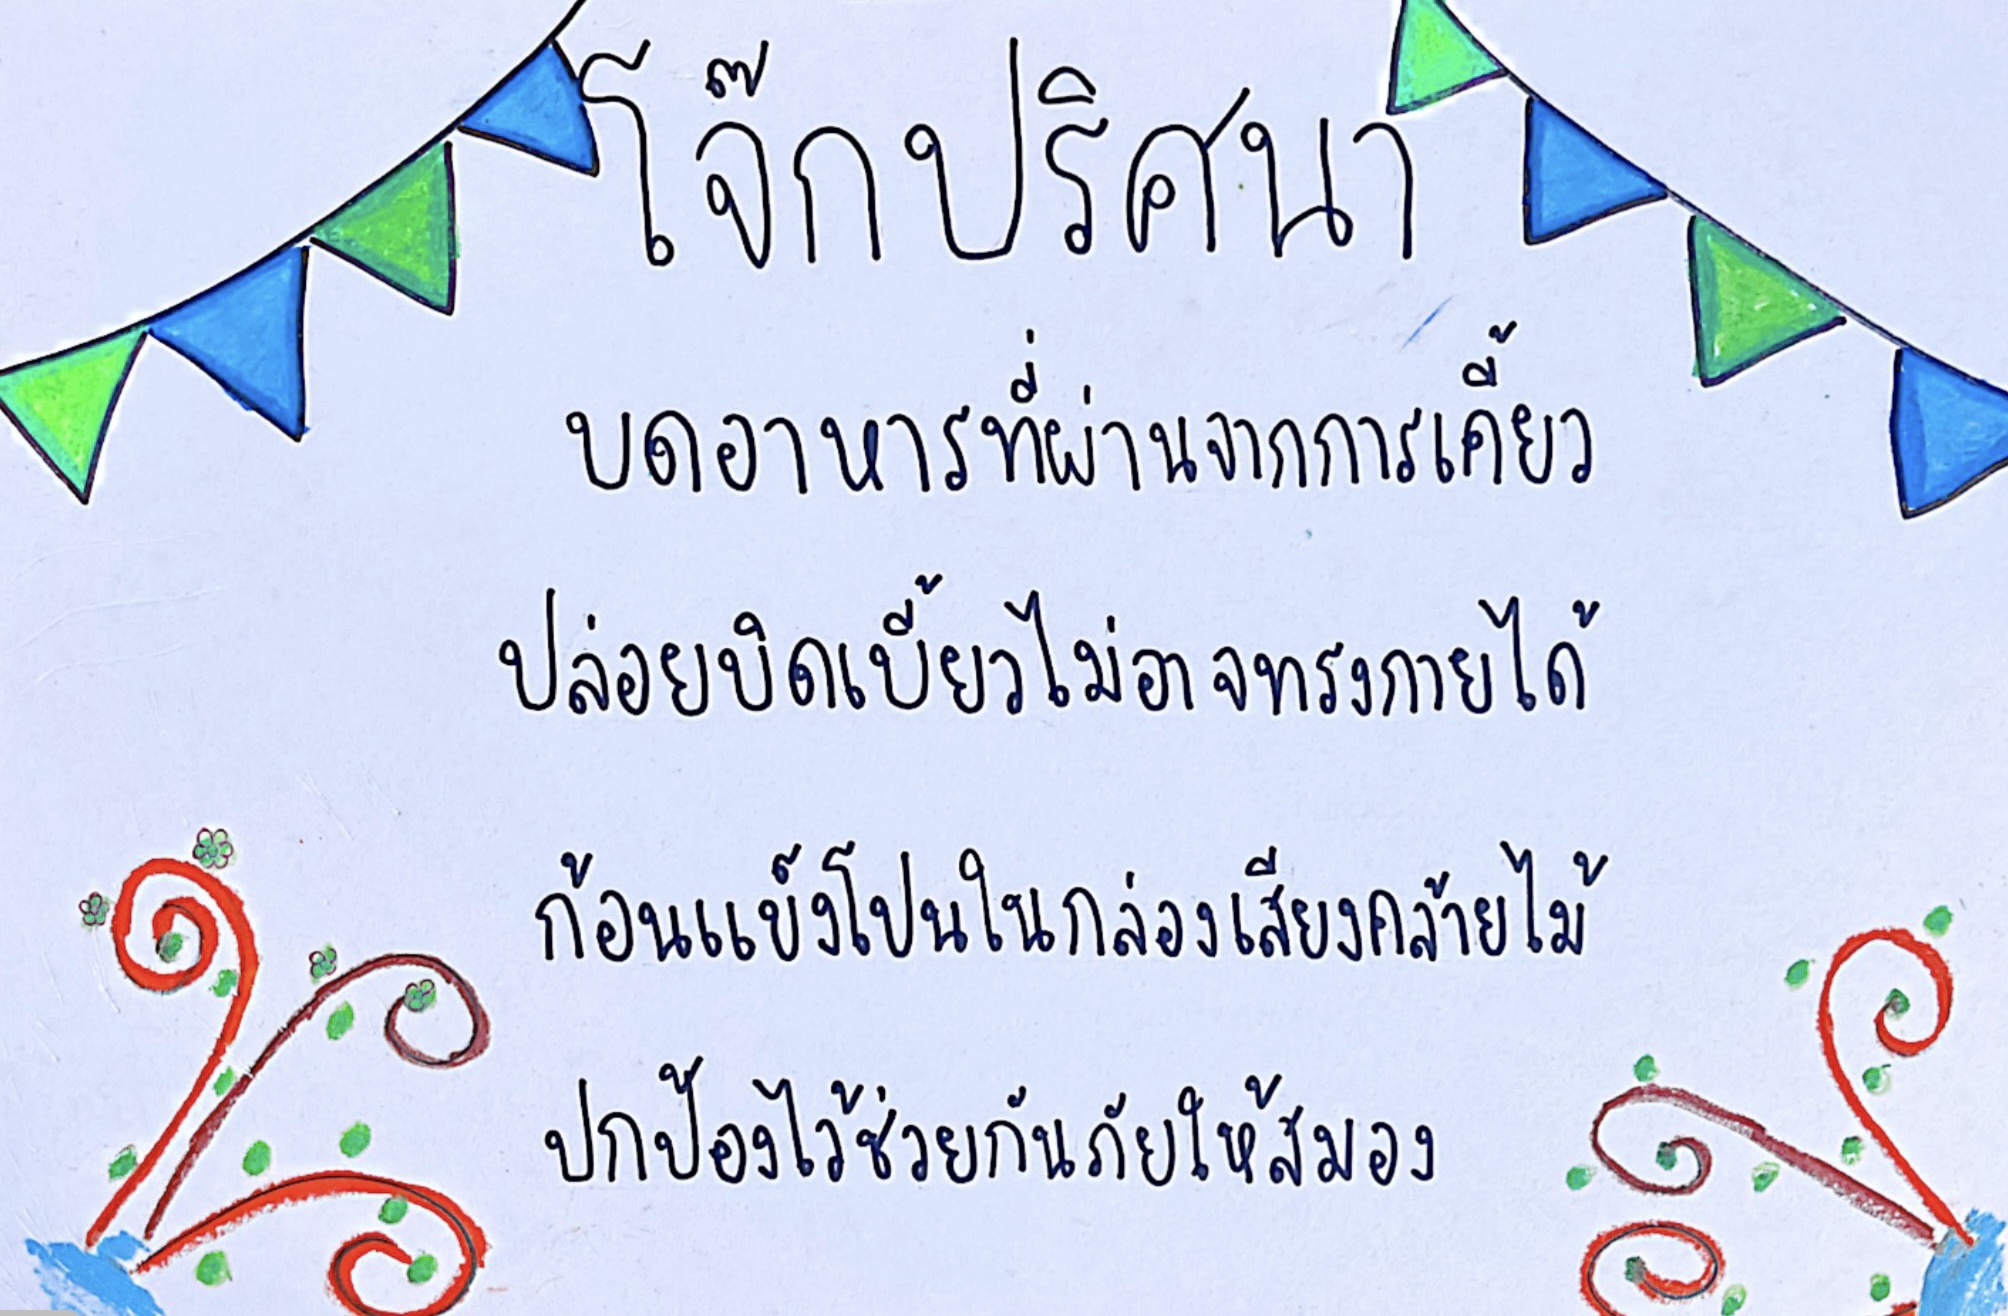 โจ๊กปริศนา
บดอาหารที่ผ่านจากการเคี้ยว
ปล่อยบิดเบี้ยวไม่อาจทรงกายได้
ก้อนแข็งโปนในกล่องเสียงคล้ายไม้
ปกป้องไว้ช่วยกันภัยให้สมอง